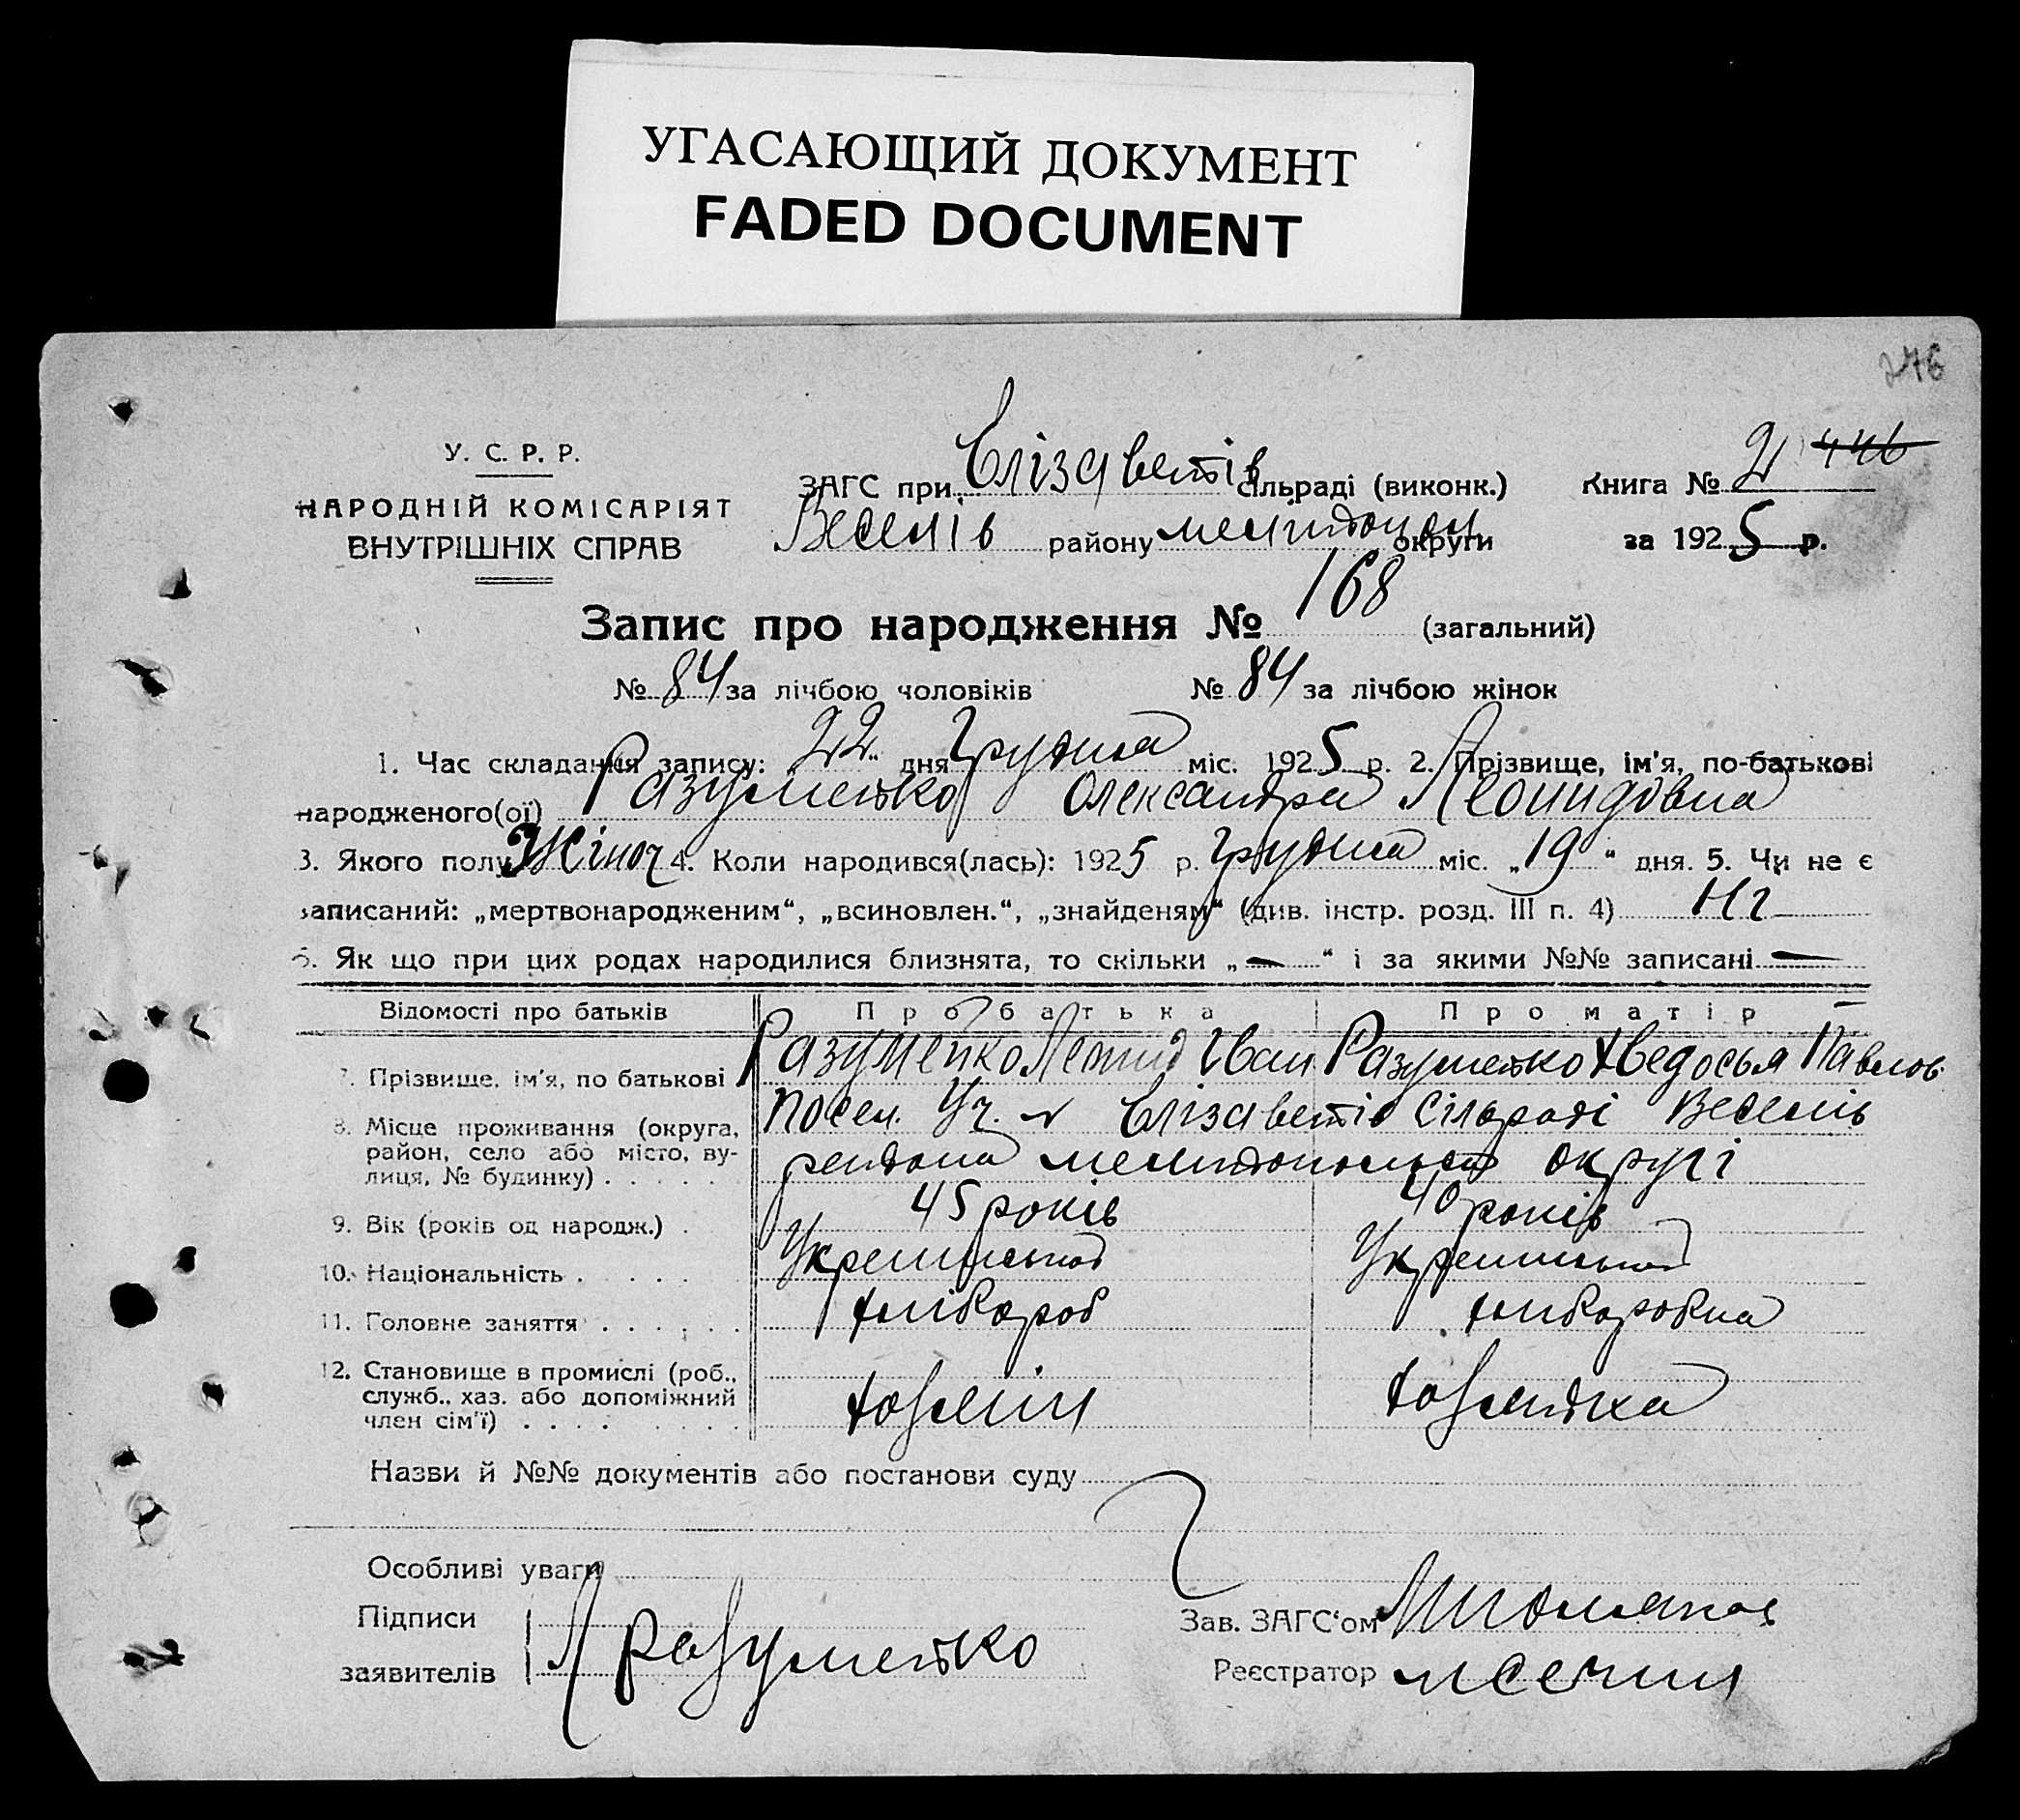 УГАСАЮЩИЙ ДОКУМЕНТ
FADED DOCUMENT
276
У. С. Р. Р.
НАРОДНІЙ КОМІСАРІЯТ
ВНУТРІШНІХ СПРАВ
ЗАГС при Єлізаветів сільраді (виконк.)
Веселів району мелітоп округи
Книга № 2 446
за 1925 р.
Запис про народження № 168 (загальний)
№ 84 за лічбою чоловіків № 84 за лічбою жінок
1. Час складання запису: 22 дня Грудня міс. 1925 р. 2. Прізвище, ім'я, по-батькові
народженого(ої) Разуменко Олександра Леонидовна
3. Якого полу Жіноч 4. Коли народився(лась): 1925 р. Грудня міс. „19“ дня. 5. Чи не є
записаний: „мертвонародженим“, „всиновлен.“, „знайденям“ (див. інстр. розд. III п. 4) Ні
6. Як що при цих родах народилися близнята, то скільки „—“ і за якими №№ записані —
Відомості про батьків Про батька Про матір
7. Прізвище, ім'я, по батькові Разуменко Леонид Іван Разуменко Хведосья Павлов.
8. Місце проживання (округа, район, село або місто, вулиця, № будинку) Посел. Уч. Єлізаветів сільраді Веселів
района мелитопольськ округі
9. Вік (років од народж.) 45 років 40 років
10. Національність Украінська Украінська
11. Головне заняття хлібороб хліборобка
12. Становище в промислі (роб., служб., хаз. або допоміжний член сім'ї) хозяїн хозяйка
Назви й №№ документів або постанови суду
Особливі уваги
Підписи
заявителів Л Разуменко
Зав. ЗАГС'ом
Реєстратор